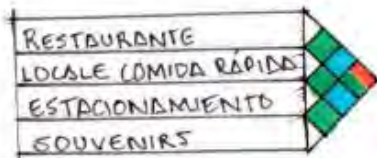 RESTAURANTE
LOCALE COMIDA RÁPIDA
ESTACIONAMIENTO
SOUVENIRS